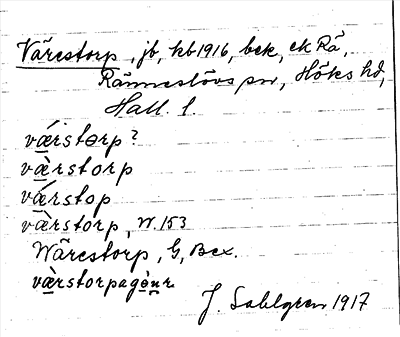 Värestorp, jb, kb 1916, bek, ek Rä,
Ränneslövs sn, Höks hd,
Hall. l.
vá̱rstɵrp?
và̱rstorp
vá̱rstop
và̱rstorp, W. 153
Wärestorp, G, Bex.
và̱rstorpagò̱ṉr
J. Sahlgren 1917